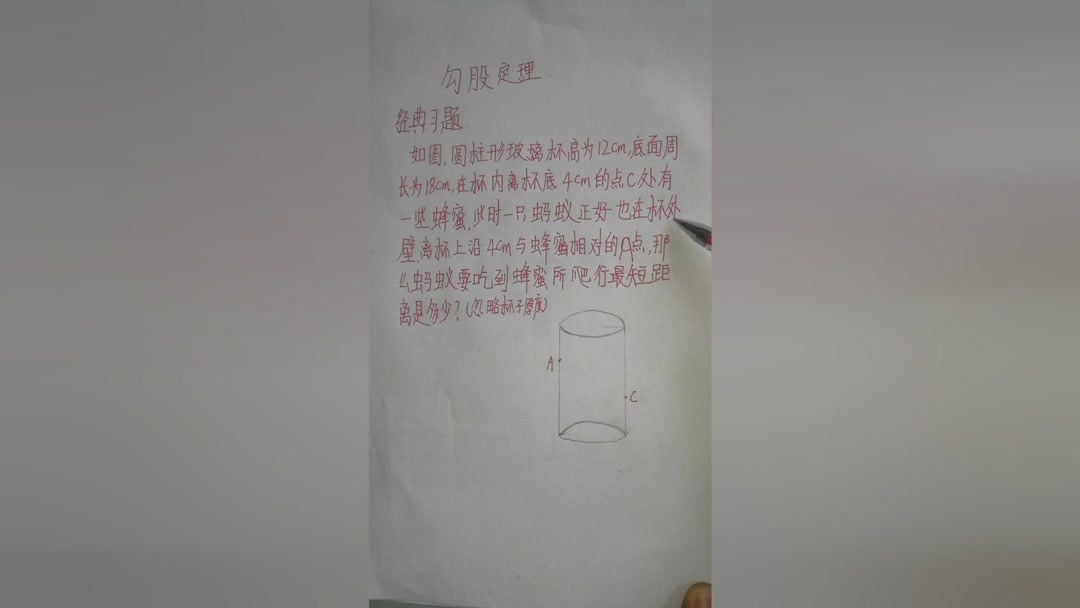 勾股定理.
经典习题.
如图,圆柱形玻璃杯高为12cm,底面周
长为18cm,在杯内离杯底4cm的点C处有
一些蜂蜜,此时一只蚂蚁正好也在杯外
壁,离杯上沿4cm与蜂蜜相对的A点,那
么蚂蚁要吃到蜂蜜所爬行最短距
离是多少?(忽略杯子厚度)
A
C